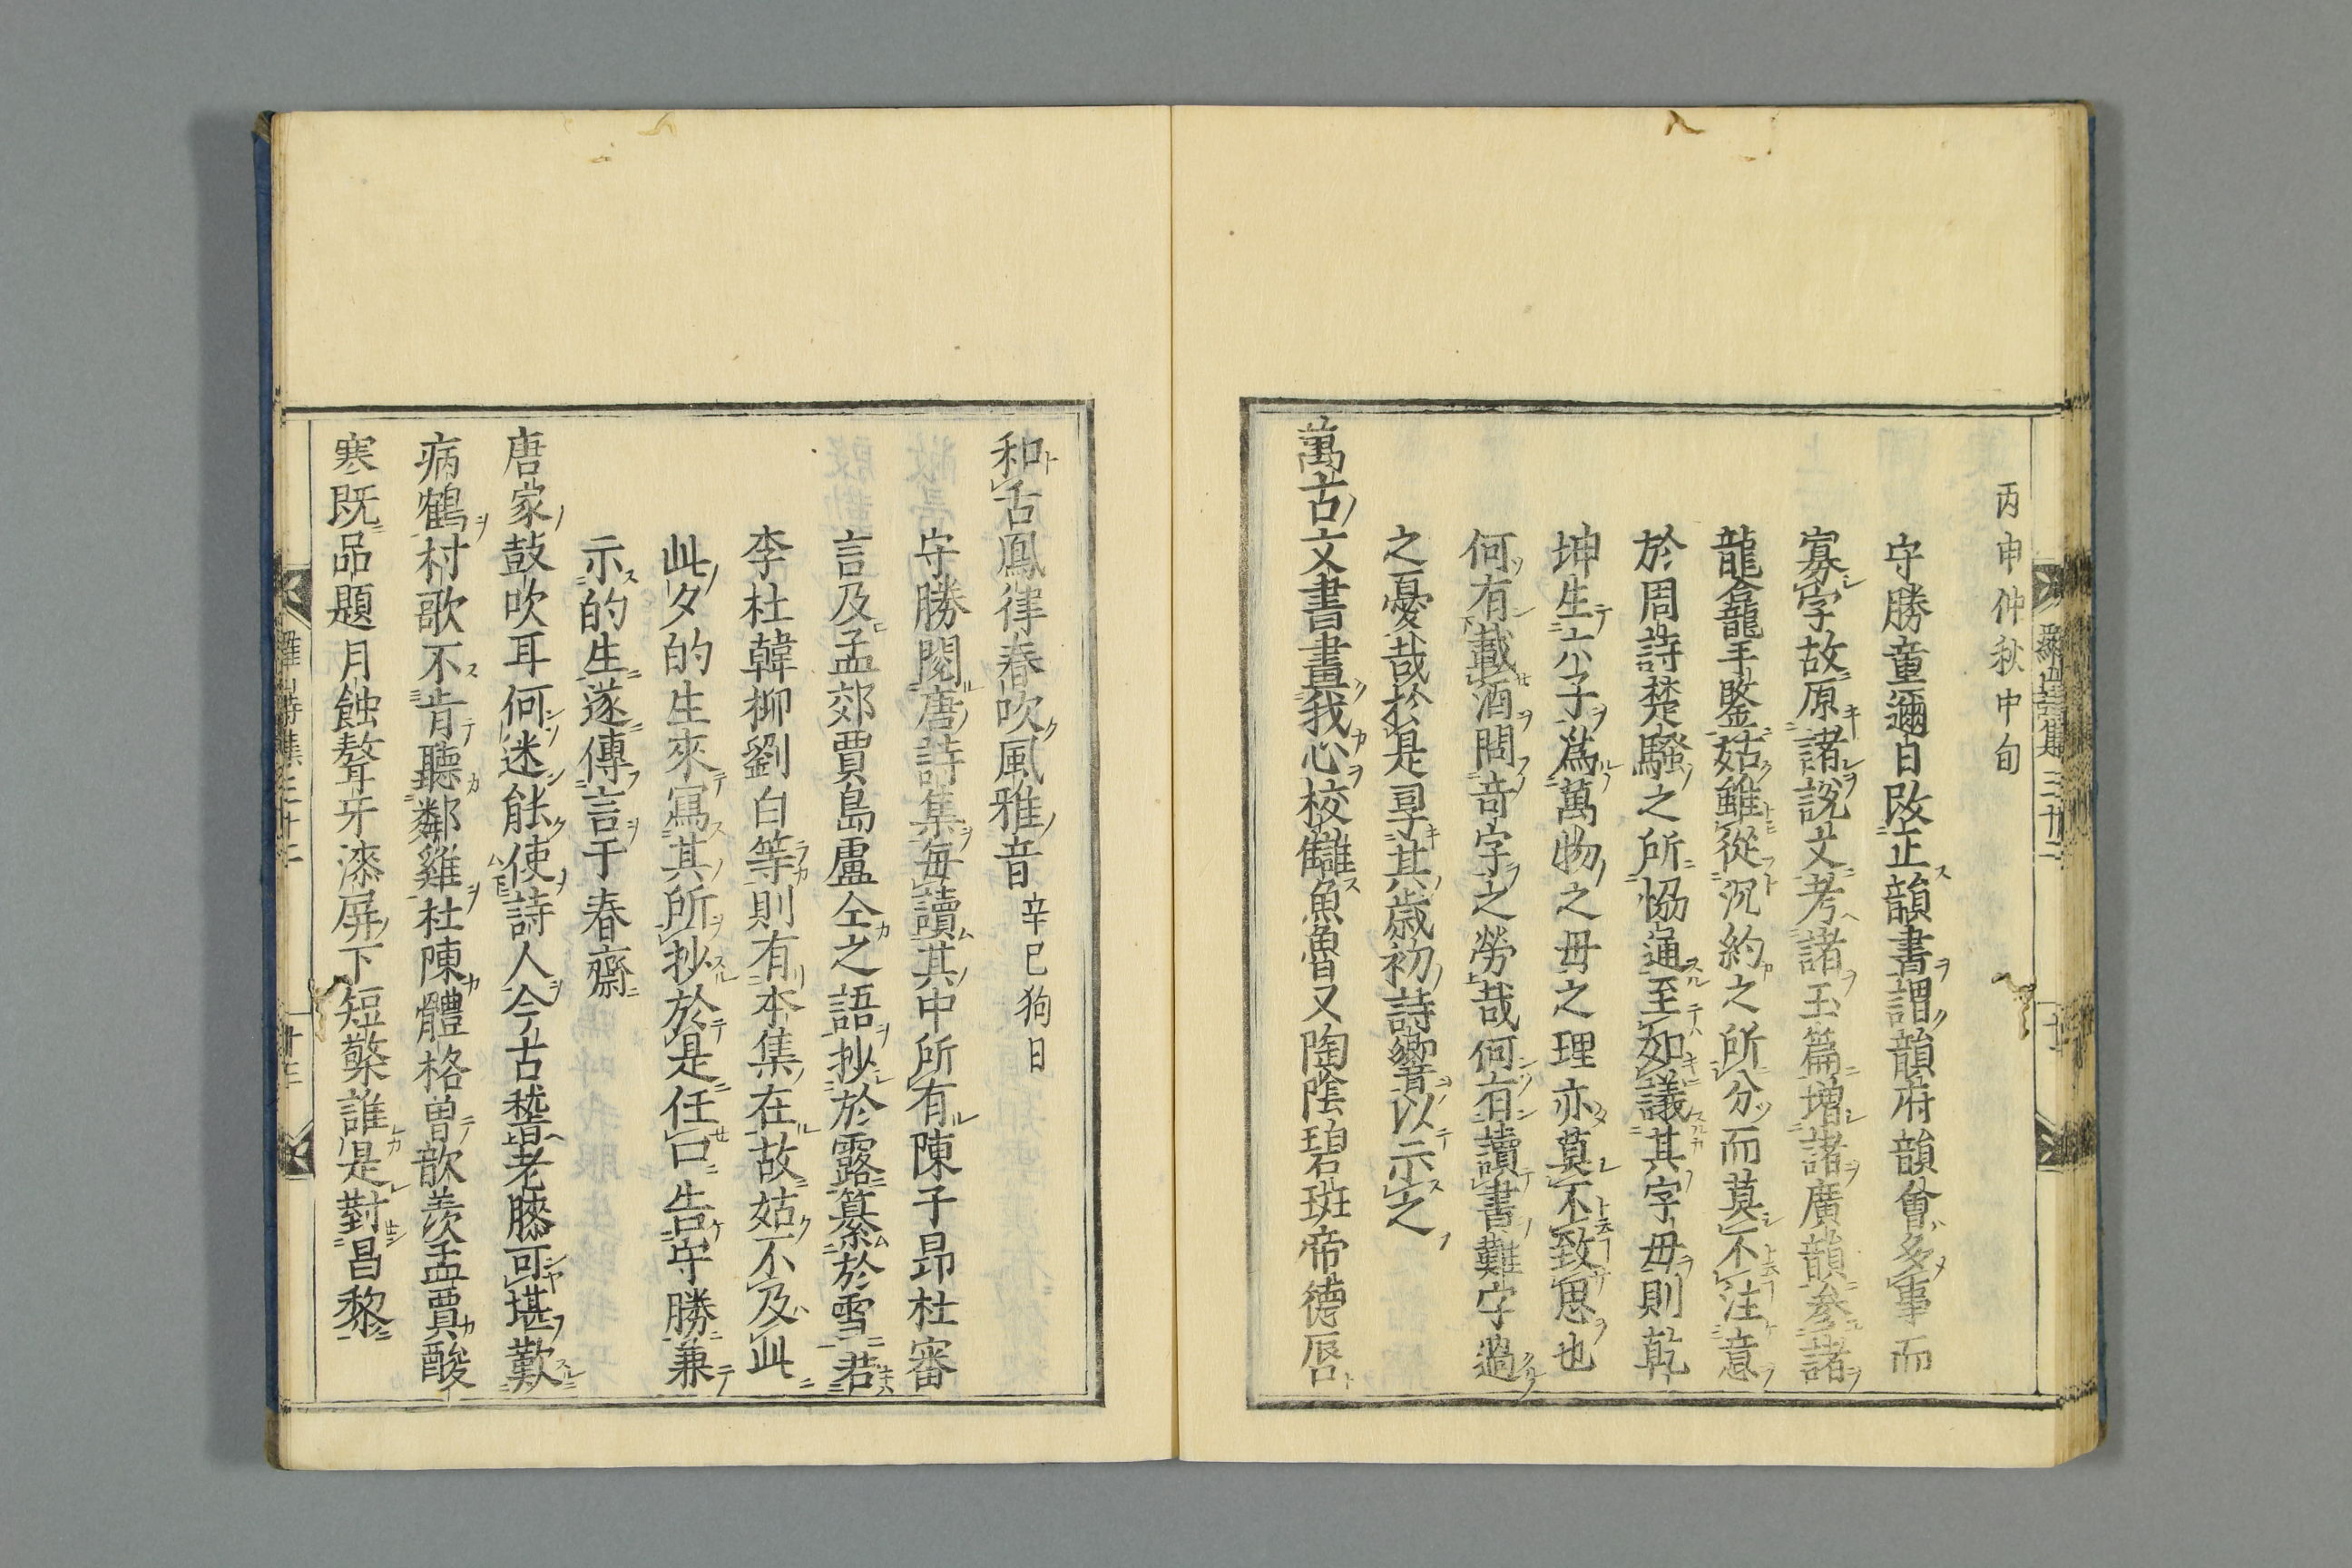 丙申仲秋中旬
守勝童邇日改正韻書謂韻府韻會多事而
寡字故原諸說文考諸玉篇増諸廣韻参諸
龍龕手鑒姑雖從沉約之所分而莫不注意
於周詩楚騷之所恊通至如議其字毋則乾
坤生六子爲萬物之毋之理亦莫不致思也
何有載酒問竒字之勞哉何有讀書難字過
之憂哉於是寻其歳初詩響以示之
萬古文書畫我心校讎魚魯又陶陰碧斑帝徳唇
和舌鳳律春吹風雅音辛巳狗日
守勝閲唐詩集毎讀其中所有陳子昂杜審
言及孟郊賈島盧仝之語抄於露纂於雪若
李杜韓柳劉白等則有本集在故姑不及此
此夕的生來寫其所抄於是任口告守勝兼
示的生遂傳言于春齋
唐家鼓吹耳何迷能使詩人今古嵆老滕可堪歎
病鶴村歌不肯聽鄰雞杜陳體格曽歆羨孟賈酸
寒既品題月蝕聱牙漆屏下短檠誰是對昌黎
羅山詩集三十二
十三